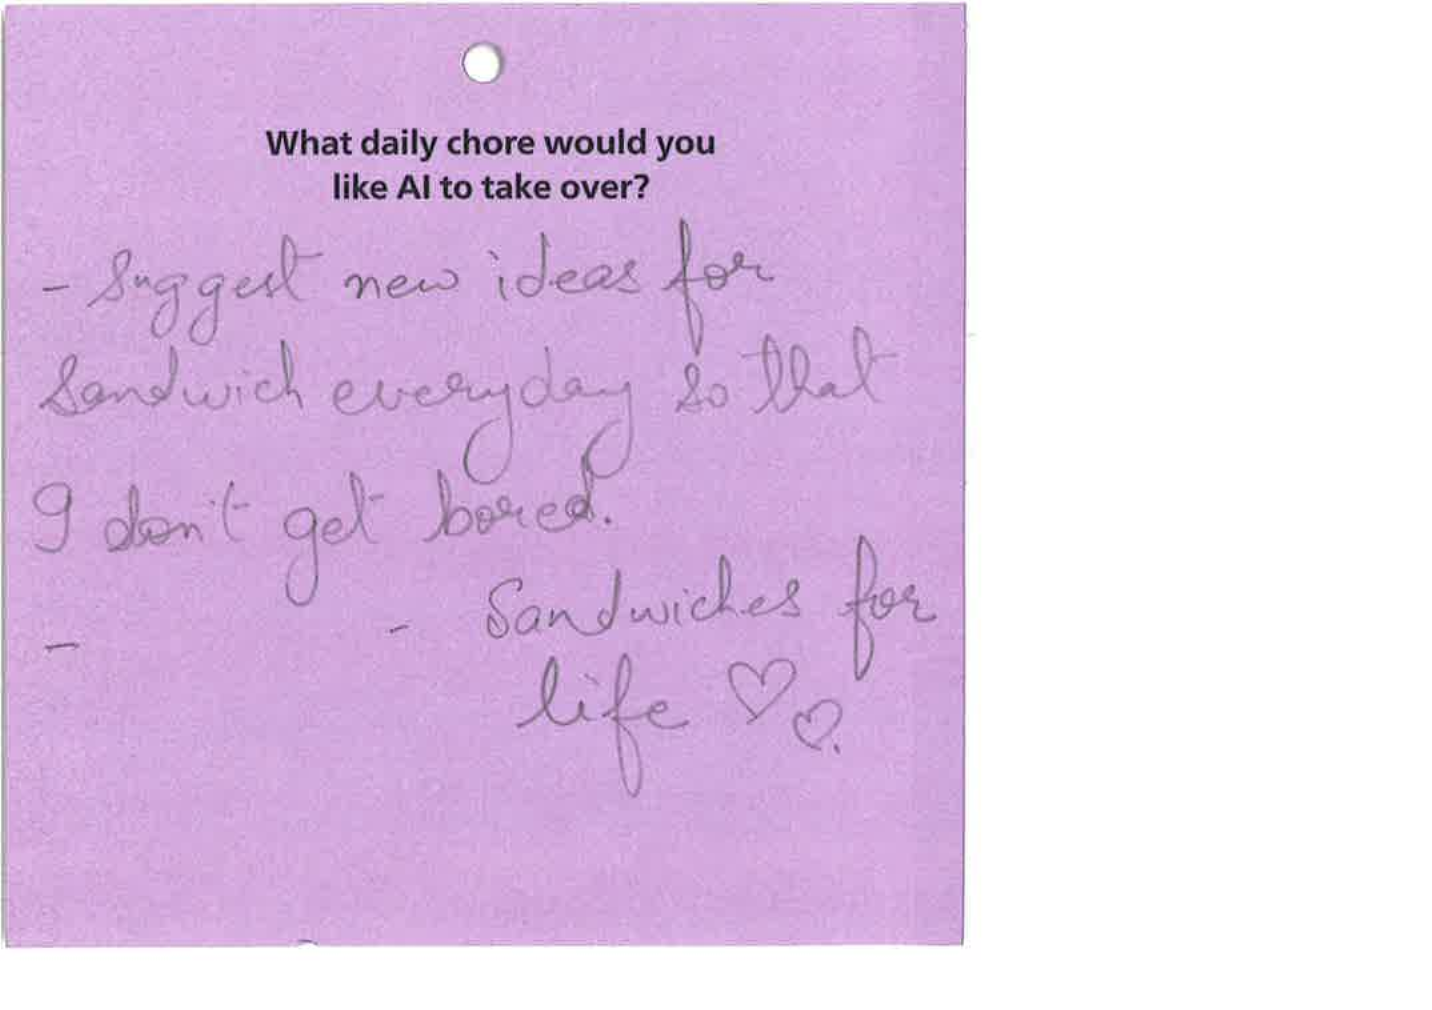 What daily chore would you
like AI to take over?
- Suggest new ideas for
Sandwich everyday so that
I don't get bored.
- - Sandwiches for
life ♡♡.